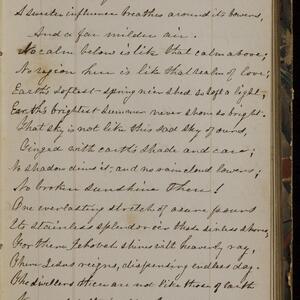 A sweeter influence breathes around its bowers,
And a far milder air.
No calm below is like that calm above;
No region here is like that realm of love;
Earth's softest spring ne'er shed so soft a light,
Earth's brightest summer never shone so bright.
That sky is not like this sad sky of ours,
Tinged with earth's shade and care;
No shadow dims it, and no rain cloud lowers;
No broken sunshine there!
One everlasting stretch of azure pours
Its stainless splendor o'er these sinless shores;
For there Jehovah shines with heavenly ray,
There Jesus reigns, dispensing endless day.
The dwellers there are not like those of earth